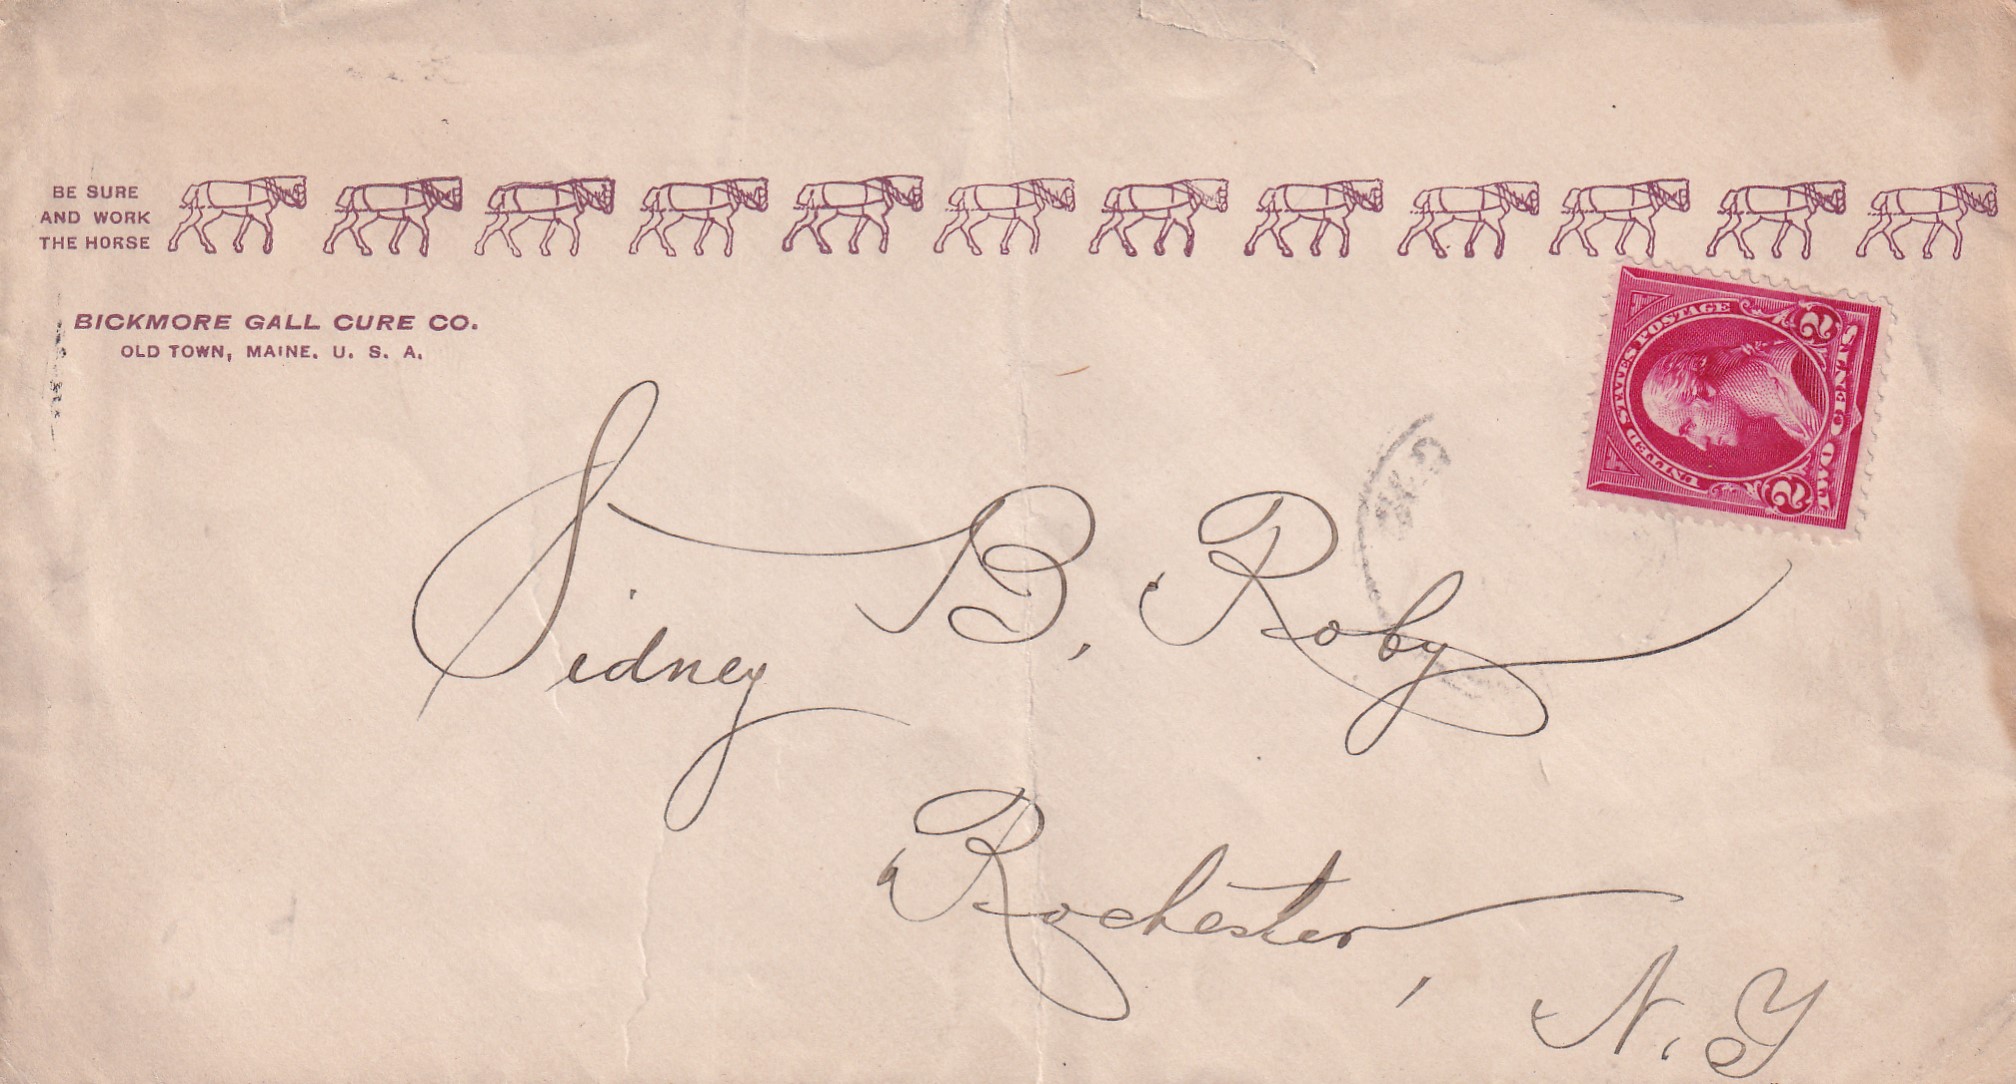 BE SURE
AND WORK
THE HORSE
BICKMORE GALL CURE CO.
OLD TOWN, MAINE. U. S. A.
UNITED STATES POSTAGE
2 2
TWO CENTS
Sidney B. Roby
Rochester,
N.Y